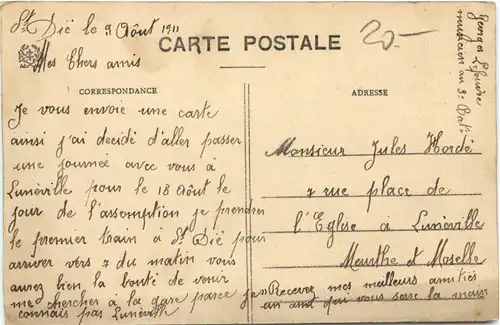 St Dïé le 9 Août 1911
20-
CARTE POSTALE
Mes Chers amis
Georges Lefeuvre
musicien au 3e Bat:
CORRESPONDANCE
ADRESSE
Je vous envoie une carte
ainsi j'ai decidé d'aller passer
une journée avec vous à
Lunéville pour le 18 Août le
jour de l'assomption je prendrer
le premier train à St Dïé pour
arriver vers 7 du matin vous
aurez bien la bonté de venir
me chercher à la gare parce je n
connais pas Lunéville
Monsieur Jules Hordé
7 rue place de
l'Eglise à Lunéville
Meurthe et Moselle
Recevez mes meilleurs amitiés
un ami qui vous serre la main